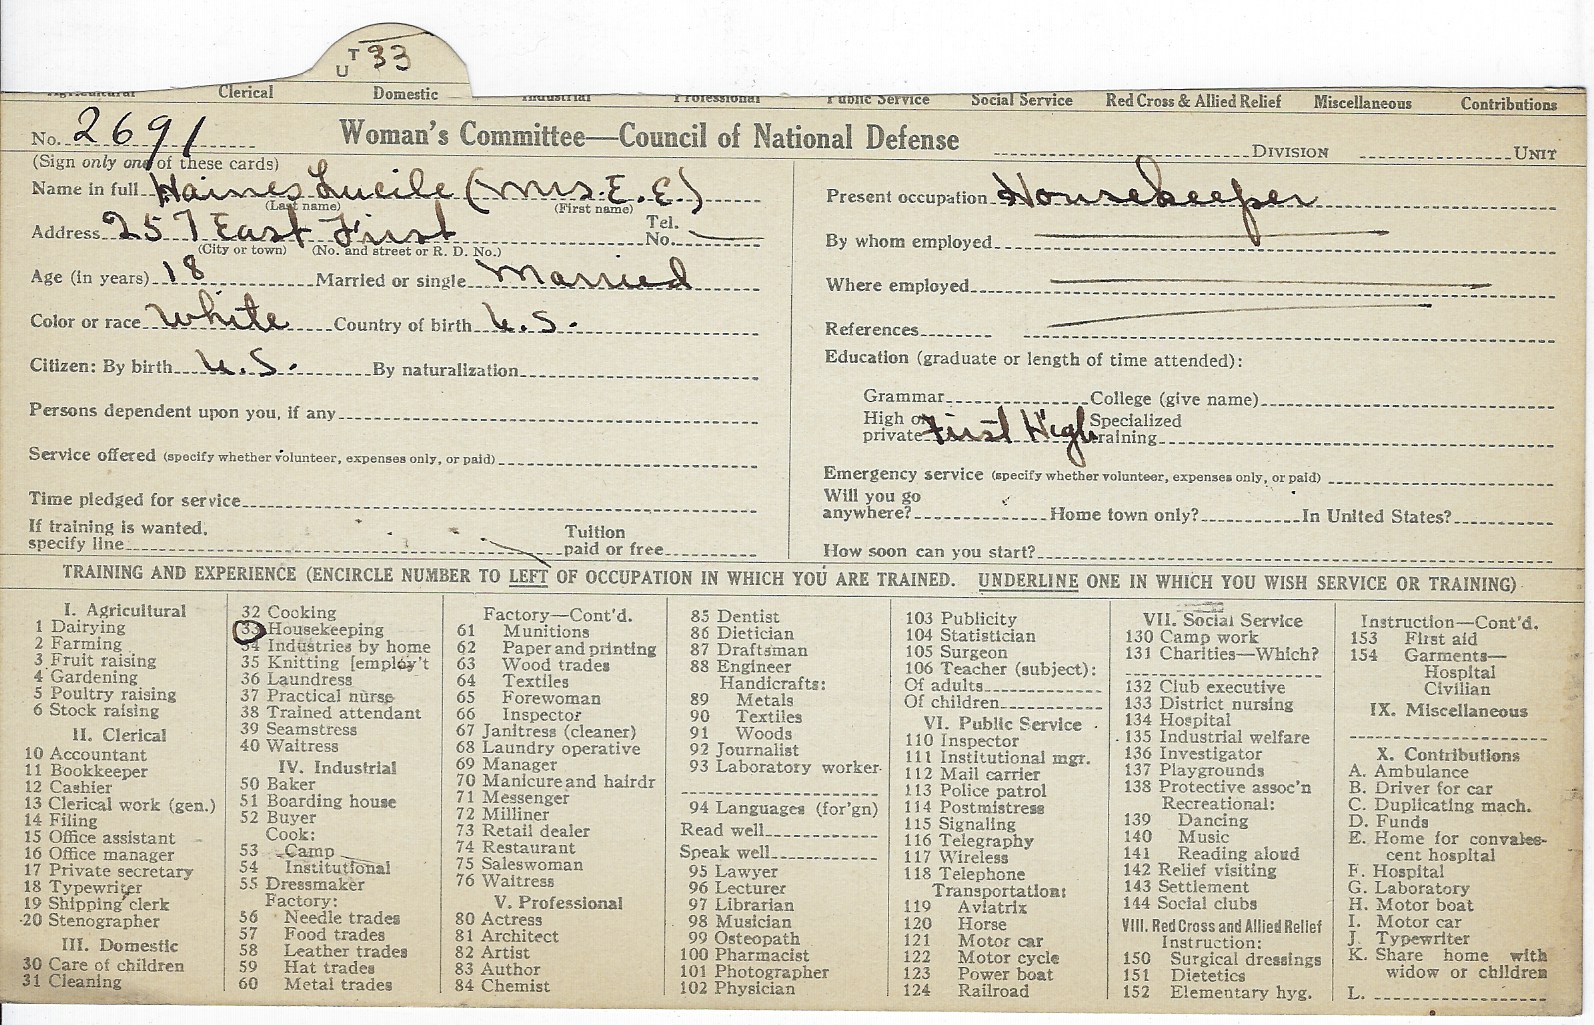 UT 33
Agricultural Clerical Domestic Industrial Professional Public Service Social Service Red Cross & Allied Relief Miscellaneous Contributions
No. 2691 Woman's Committee—Council of National Defense DIVISION UNIT
(Sign only one of these cards)
Name in full Haines Lucile (Mrs. E. E.)
(Last name) (First name)
Address 257 East First Tel. No.
(City or town) (No. and street or R. D. No.)
Age (in years) 18 Married or single Married
Color or race White Country of birth U.S.
Citizen: By birth U.S. By naturalization
Persons dependent upon you, if any
Service offered (specify whether volunteer, expenses only, or paid)
Time pledged for service
If training is wanted, specify line Tuition paid or free
Present occupation Housekeeper
By whom employed
Where employed
References
Education (graduate or length of time attended):
Grammar College (give name)
High or private First High Specialized training
Emergency service (specify whether volunteer, expenses only, or paid)
Will you go anywhere? Home town only? In United States?
How soon can you start?
TRAINING AND EXPERIENCE (ENCIRCLE NUMBER TO LEFT OF OCCUPATION IN WHICH YOU ARE TRAINED. UNDERLINE ONE IN WHICH YOU WISH SERVICE OR TRAINING)
I. Agricultural
1 Dairying
2 Farming
3 Fruit raising
4 Gardening
5 Poultry raising
6 Stock raising
II. Clerical
10 Accountant
11 Bookkeeper
12 Cashier
13 Clerical work (gen.)
14 Filing
15 Office assistant
16 Office manager
17 Private secretary
18 Typewriter
19 Shipping clerk
20 Stenographer
III. Domestic
30 Care of children
31 Cleaning
32 Cooking
33 Housekeeping
34 Industries by home
35 Knitting [employ't
36 Laundress
37 Practical nurse
38 Trained attendant
39 Seamstress
40 Waitress
IV. Industrial
50 Baker
51 Boarding house
52 Buyer
Cook:
53 Camp
54 Institutional
55 Dressmaker
Factory:
56 Needle trades
57 Food trades
58 Leather trades
59 Hat trades
60 Metal trades
Factory—Cont'd.
61 Munitions
62 Paper and printing
63 Wood trades
64 Textiles
65 Forewoman
66 Inspector
67 Janitress (cleaner)
68 Laundry operative
69 Manager
70 Manicure and hairdr
71 Messenger
72 Milliner
73 Retail dealer
74 Restaurant
75 Saleswoman
76 Waitress
V. Professional
80 Actress
81 Architect
82 Artist
83 Author
84 Chemist
85 Dentist
86 Dietician
87 Draftsman
88 Engineer
Handicrafts:
89 Metals
90 Textiles
91 Woods
92 Journalist
93 Laboratory worker
94 Languages (for'gn)
Read well
Speak well
95 Lawyer
96 Lecturer
97 Librarian
98 Musician
99 Osteopath
100 Pharmacist
101 Photographer
102 Physician
103 Publicity
104 Statistician
105 Surgeon
106 Teacher (subject):
Of adults
Of children
VI. Public Service
110 Inspector
111 Institutional mgr.
112 Mail carrier
113 Police patrol
114 Postmistress
115 Signaling
116 Telegraphy
117 Wireless
118 Telephone
Transportation:
119 Aviatrix
120 Horse
121 Motor car
122 Motor cycle
123 Power boat
124 Railroad
VII. Social Service
130 Camp work
131 Charities—Which?
132 Club executive
133 District nursing
134 Hospital
135 Industrial welfare
136 Investigator
137 Playgrounds
138 Protective assoc'n
Recreational:
139 Dancing
140 Music
141 Reading aloud
142 Relief visiting
143 Settlement
144 Social clubs
VIII. Red Cross and Allied Relief
Instruction:
150 Surgical dressings
151 Dietetics
152 Elementary hyg.
Instruction—Cont'd.
153 First aid
154 Garments—
Hospital
Civilian
IX. Miscellaneous
X. Contributions
A. Ambulance
B. Driver for car
C. Duplicating mach.
D. Funds
E. Home for convales-
cent hospital
F. Hospital
G. Laboratory
H. Motor boat
I. Motor car
J. Typewriter
K. Share home with
widow or children
L.